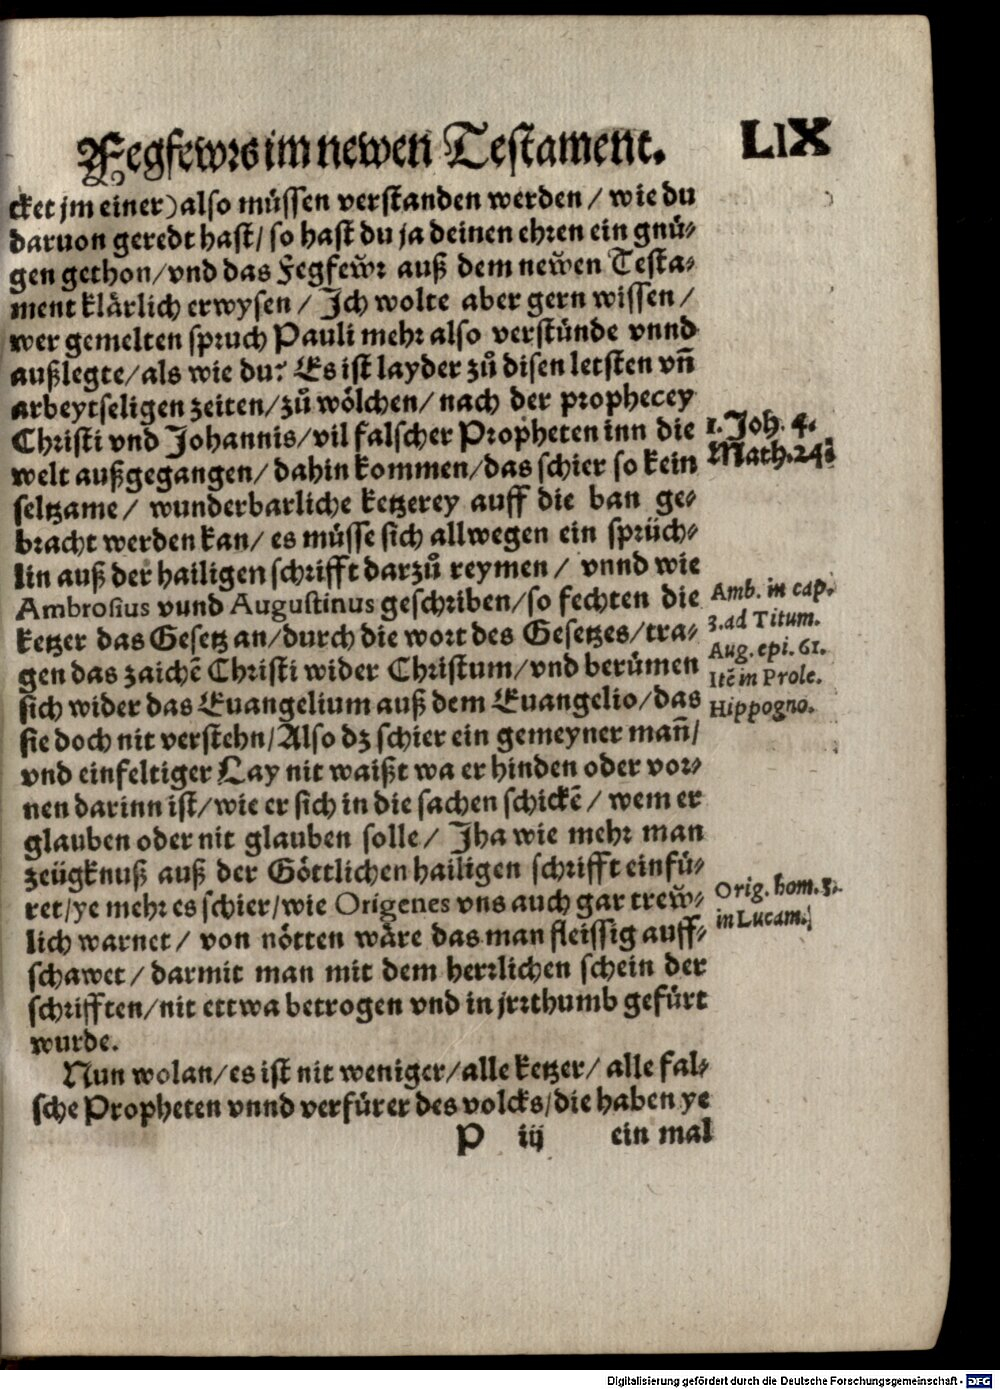 Fegfewrs im newen Testament. LIX
cket jm einer) also müssen verstanden werden / wie du
daruon geredt hast / so hast du ja deinen ehren ein gnů-
gen gethon / vnd das Fegfeẅr auß dem neẅen Testa-
ment klärlich erwysen / Ich wolte aber gern wissen /
wer gemelten spruch Pauli mehr also verstünde vnnd
außlegte / als wie du? Es ist layder zů disen letsten vñ
arbeytseligen zeiten / zů wölchen / nach der prophecey
Christi vnd Johannis / vil falscher Propheten inn die
1. Joh. 4.
welt außgegangen / dahin kommen / das schier so kein
Math. 24.
seltzame / wunderbarliche ketzerey auff die ban ge-
bracht werden kan / es müsse sich allwegen ein sprüch-
lin auß der hailigen schrifft darzů reymen / vnnd wie
Ambrosius vund Augustinus geschriben / so fechten die
Amb. in cap.
ketzer das Gesetz an / durch die wort des Gesetzes / tra-
3. ad Titum.
Aug. epi. 61.
gen das zaichē Christi wider Christum / vnd berümen
Itē in Prole.
sich wider das Euangelium auß dem Euangelio / das
Hippogno.
sie doch nit verstehn / Also dz schier ein gemeyner mañ /
vnd einfeltiger Lay nit waißt wa er hinden oder vor-
nen darinn ist / wie er sich in die sachen schickē / wem er
glauben oder nit glauben solle / Jha wie mehr man
zeügknuß auß der Göttlichen hailigen schrifft einfü-
ret / ye mehr es schier / wie Origenes vns auch gar treẅ-
Orig. hom. 31.
lich warnet / von nötten wäre das man fleissig auff-
in Lucam.
schawet / darmit man mit dem herrlichen schein der
schrifften / nit ettwa betrogen vnd in jrrthumb gefürt
wurde.
Nun wolan / es ist nit weniger / alle ketzer / alle fal-
sche Propheten vnnd verfürer des volcks / die haben ye
P iij ein mal
Digitalisierung gefördert durch die Deutsche Forschungsgemeinschaft - DFG